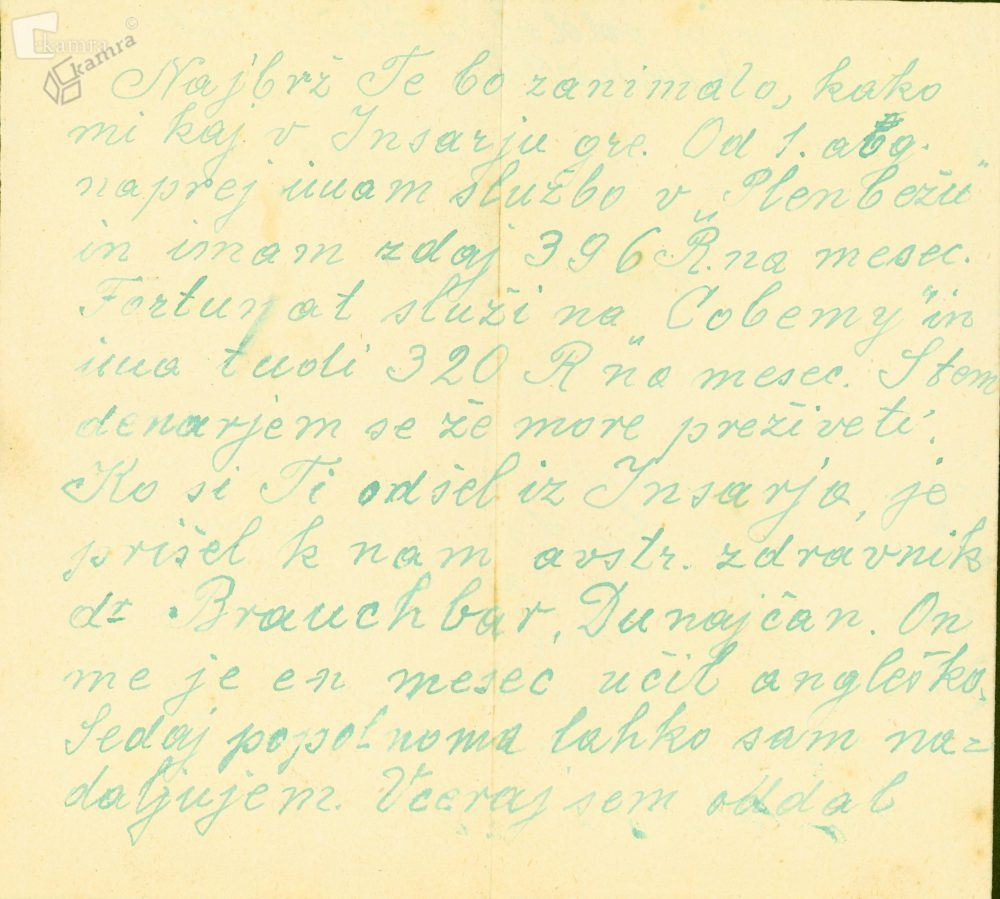 kamra
kamra ©
Najbrž Te bo zanimalo, kako
mi kaj v Insarju gre. Od 1. avg.
naprej imam službo v „Plenbežu“
in imam zdaj 396 R. na mesec.
Fortunat služi na „Cobemy“ in
ima tudi 320 R na mesec. S tem
denarjem se že more preživeti.
Ko si Ti odšel iz Insarja, je
prišel k nam avstr. zdravnik
dr. Brauchbar, Dunajčan. On
me je en mesec učil angleško.
Sedaj popolnoma lahko sam na=
daljujem. Včeraj sem oddal